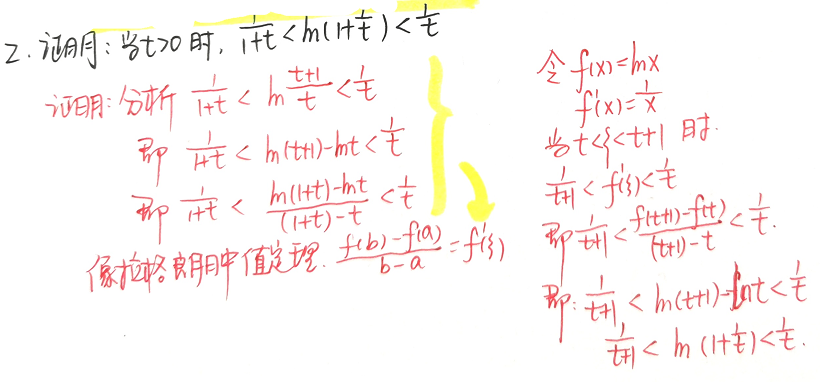 2. 证明：当t>0时, 1/(1+t) < ln(1+1/t) < 1/t
证明：分析 1/(1+t) < ln (t+1)/t < 1/t
即 1/(1+t) < ln(t+1)-lnt < 1/t
即 1/(1+t) < (ln(1+t)-lnt)/((1+t)-t) < 1/t
像拉格朗日中值定理. (f(b)-f(a))/(b-a) = f'(ξ)
令 f(x)=lnx
f'(x)=1/x
当 t<ξ<t+1 时.
1/(t+1) < f'(ξ) < 1/t
即 1/(t+1) < (f(t+1)-f(t))/((t+1)-t) < 1/t.
即: 1/(t+1) < ln(t+1)-lnt < 1/t
1/(t+1) < ln(1+1/t) < 1/t.